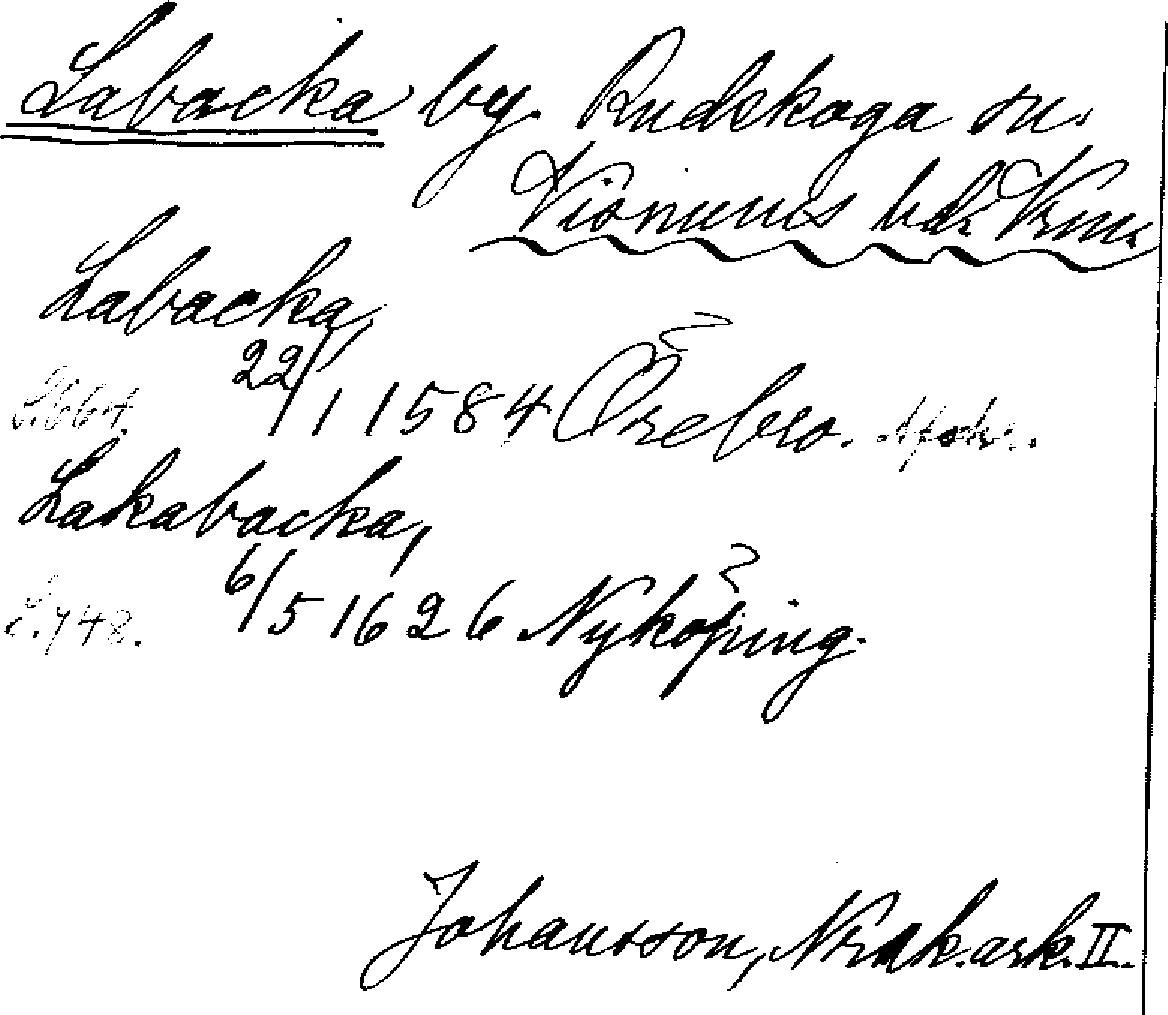 Labacka by. Rudskoga sn.
Visnums hd. Vrm.
Labacka,
22/1 1584 Örebro.
Lakabacka,
S. 748. 6/5 1626 Nyköping.
Johansson, N. ark. II.